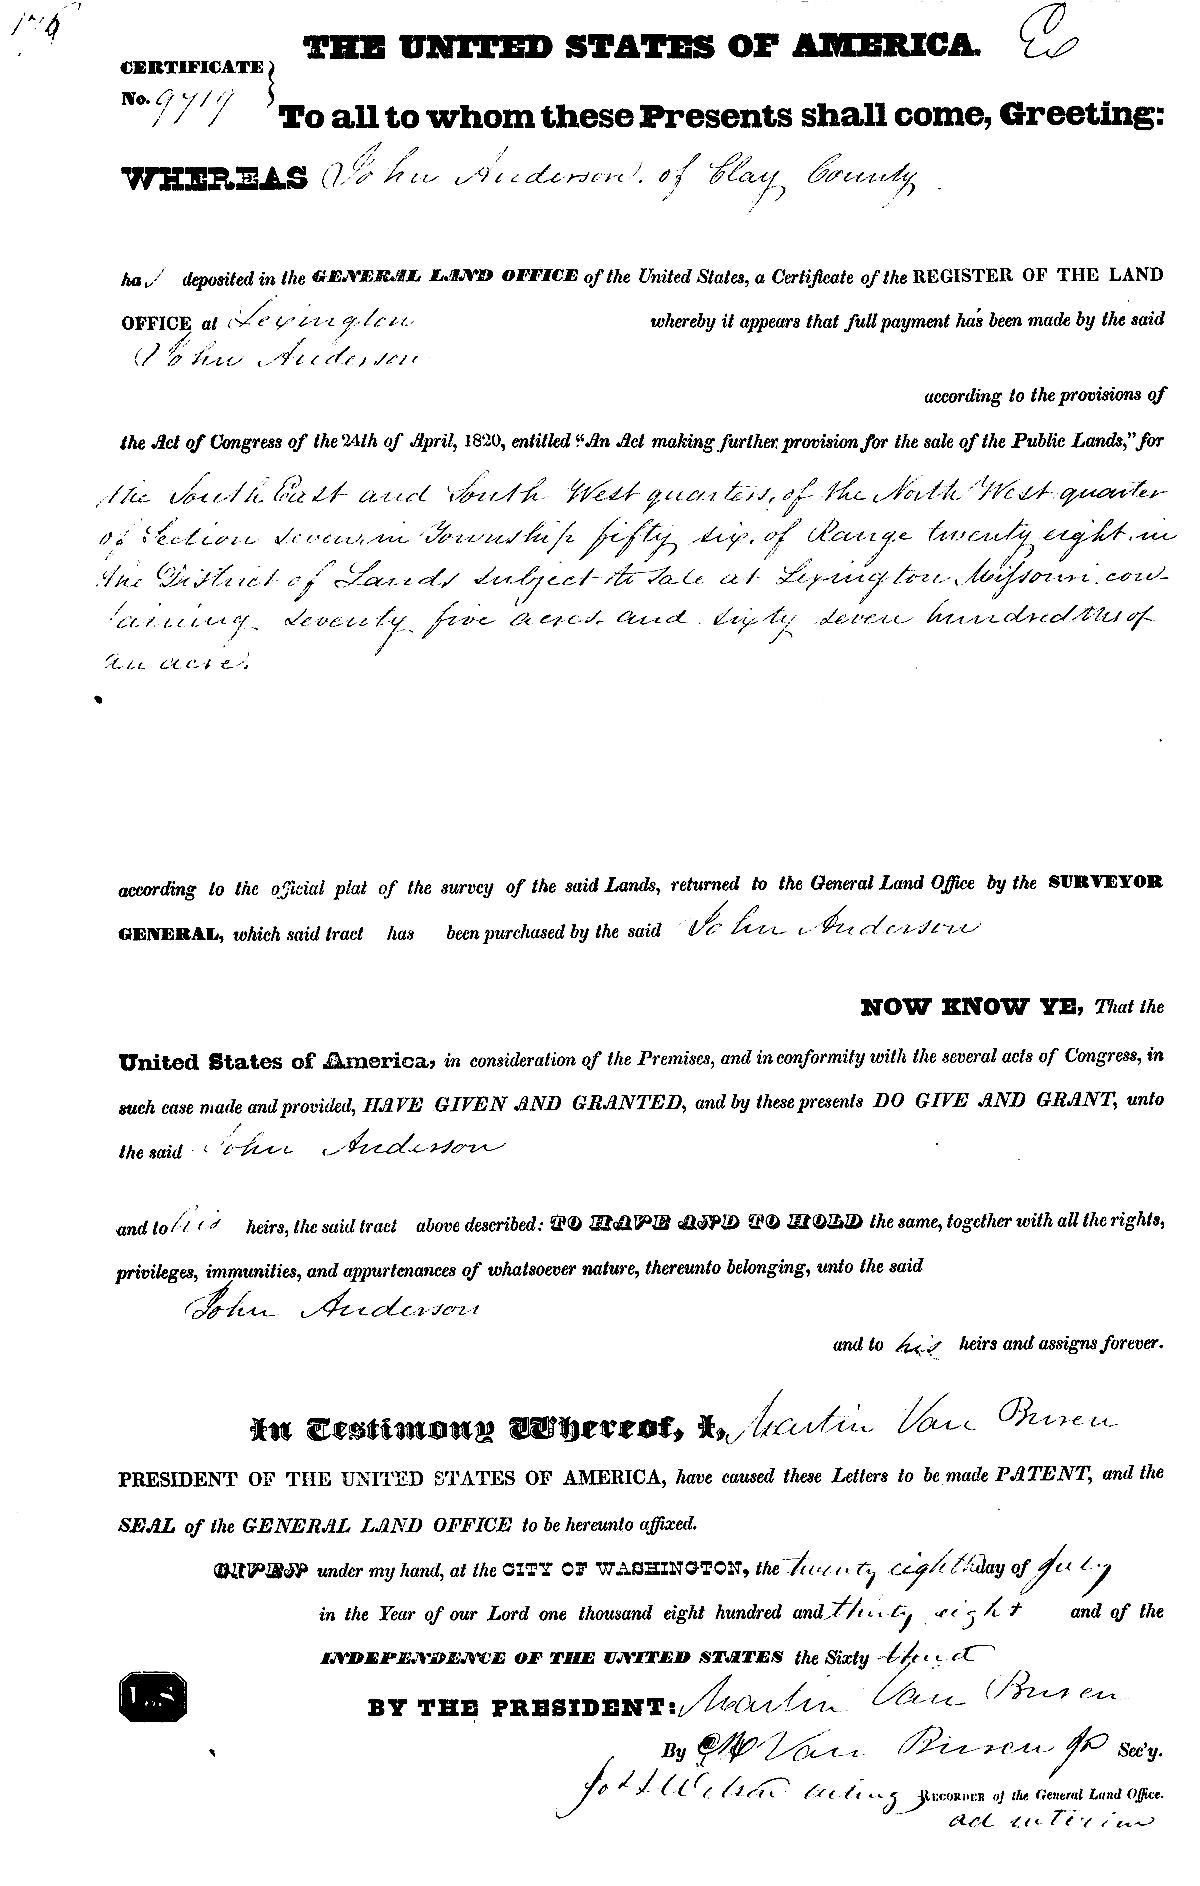 THE UNITED STATES OF AMERICA.
CERTIFICATE
No. 9719
To all to whom these Presents shall come, Greeting:
WHEREAS John Anderson, of Clay County
has deposited in the GENERAL LAND OFFICE of the United States, a Certificate of the REGISTER OF THE LAND
OFFICE at Lexington whereby it appears that full payment has been made by the said
John Anderson
according to the provisions of
the Act of Congress of the 24th of April, 1820, entitled "An Act making further provision for the sale of the Public Lands," for
the South East and South West quarters, of the North West quarter
of Section seven, in Township fifty six, of Range twenty eight, in
the District of Lands subject to sale at Lexington Missouri, con-
taining seventy five acres, and sixty seven hundredths of
an acre.
according to the official plat of the survey of the said Lands, returned to the General Land Office by the SURVEYOR
GENERAL, which said tract has been purchased by the said John Anderson
NOW KNOW YE, That the
United States of America, in consideration of the Premises, and in conformity with the several acts of Congress, in
such case made and provided, HAVE GIVEN AND GRANTED, and by these presents DO GIVE AND GRANT, unto
the said John Anderson
and to his heirs, the said tract above described: TO HAVE AND TO HOLD the same, together with all the rights,
privileges, immunities, and appurtenances of whatsoever nature, thereunto belonging, unto the said
John Anderson
and to his heirs and assigns forever.
In Testimony Whereof, I, Martin Van Buren
PRESIDENT OF THE UNITED STATES OF AMERICA, have caused these Letters to be made PATENT, and the
SEAL of the GENERAL LAND OFFICE to be hereunto affixed.
GIVEN under my hand, at the CITY OF WASHINGTON, the twenty eighth day of July
in the Year of our Lord one thousand eight hundred and thirty eight and of the
INDEPENDENCE OF THE UNITED STATES the Sixty third
L.S.
BY THE PRESIDENT: Martin Van Buren
By M Van Buren Jr Sec'y.
Jos S Wilson acting RECORDER of the General Land Office.
ad interim